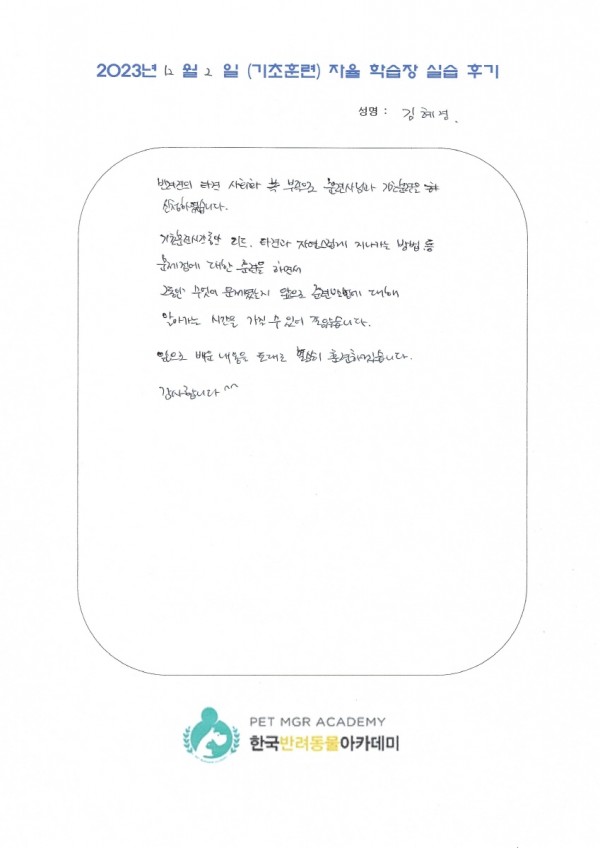 2023년 12 월 2 일 (기초훈련) 자율 학습장 실습 후기
성명 : 김혜경.
반려견의 타견 사회화 부족으로 훈련사님과 기초훈련을
신청하였습니다.
기초훈련시간동안 리드, 타견과 자연스럽게 지나가는 방법 등
문제점에 대한 훈련을 하면서
그동안 무엇이 문제였는지 앞으로 훈련방향에 대해
알아가는 시간을 가질 수 있어 좋았습니다.
앞으로 배운 내용을 토대로 열심히 훈련하겠습니다.
감사합니다 ^^
PET MGR ACADEMY
한국반려동물아카데미